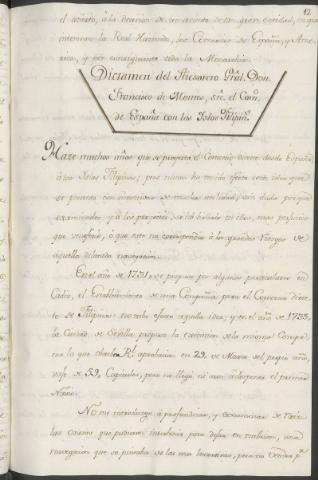 12
el acierto, à la decision de un asunto de tan gran entidad, en que
interesan la Real Hazienda, los Comercios de España, y Ame-
rica, y por consiguiente toda la Monarchia.
Dictamen del Thesorero Grãl. Don
Francisco de Montes, sre. el Com.
de España con las Islas Filipin.
Haze muchos años que se proyecta el Comercio directo desde España
à las Islas Filipinas; pero nunca ha tenido efecto esta idea que
se presenta con de mucha utilidad; sin duda porque
examinados los proyectos, se ha hallado en ellos, mas perjuicio
que veneficio, ò que este no correspondia à los grandes riesgos de
aquella dilatada navegacion.
En el año de 1731, se propuso por algunos particulares en
Cadiz, el Establecimiento de una Compañia para el Comercio direc-
to de Filipinas: no tubo efecto aquella idea; y en el año de 1733,
la Ciudad de Sevilla propuso la ereccion de la misma Compa-
ñia la que Charla Rl. aprobacion en 29, de Marzo del propio año,
vajo de 59, Capitulos, pero no llegó ni aun à disponer el primer
Navio.
No me introduzgo à profundizar, y examinar de raiz
las causas que pudieron intervenir para dejar en embrion, una
navegacion que se pintaba de las mas lucrativas, para no vender pr.